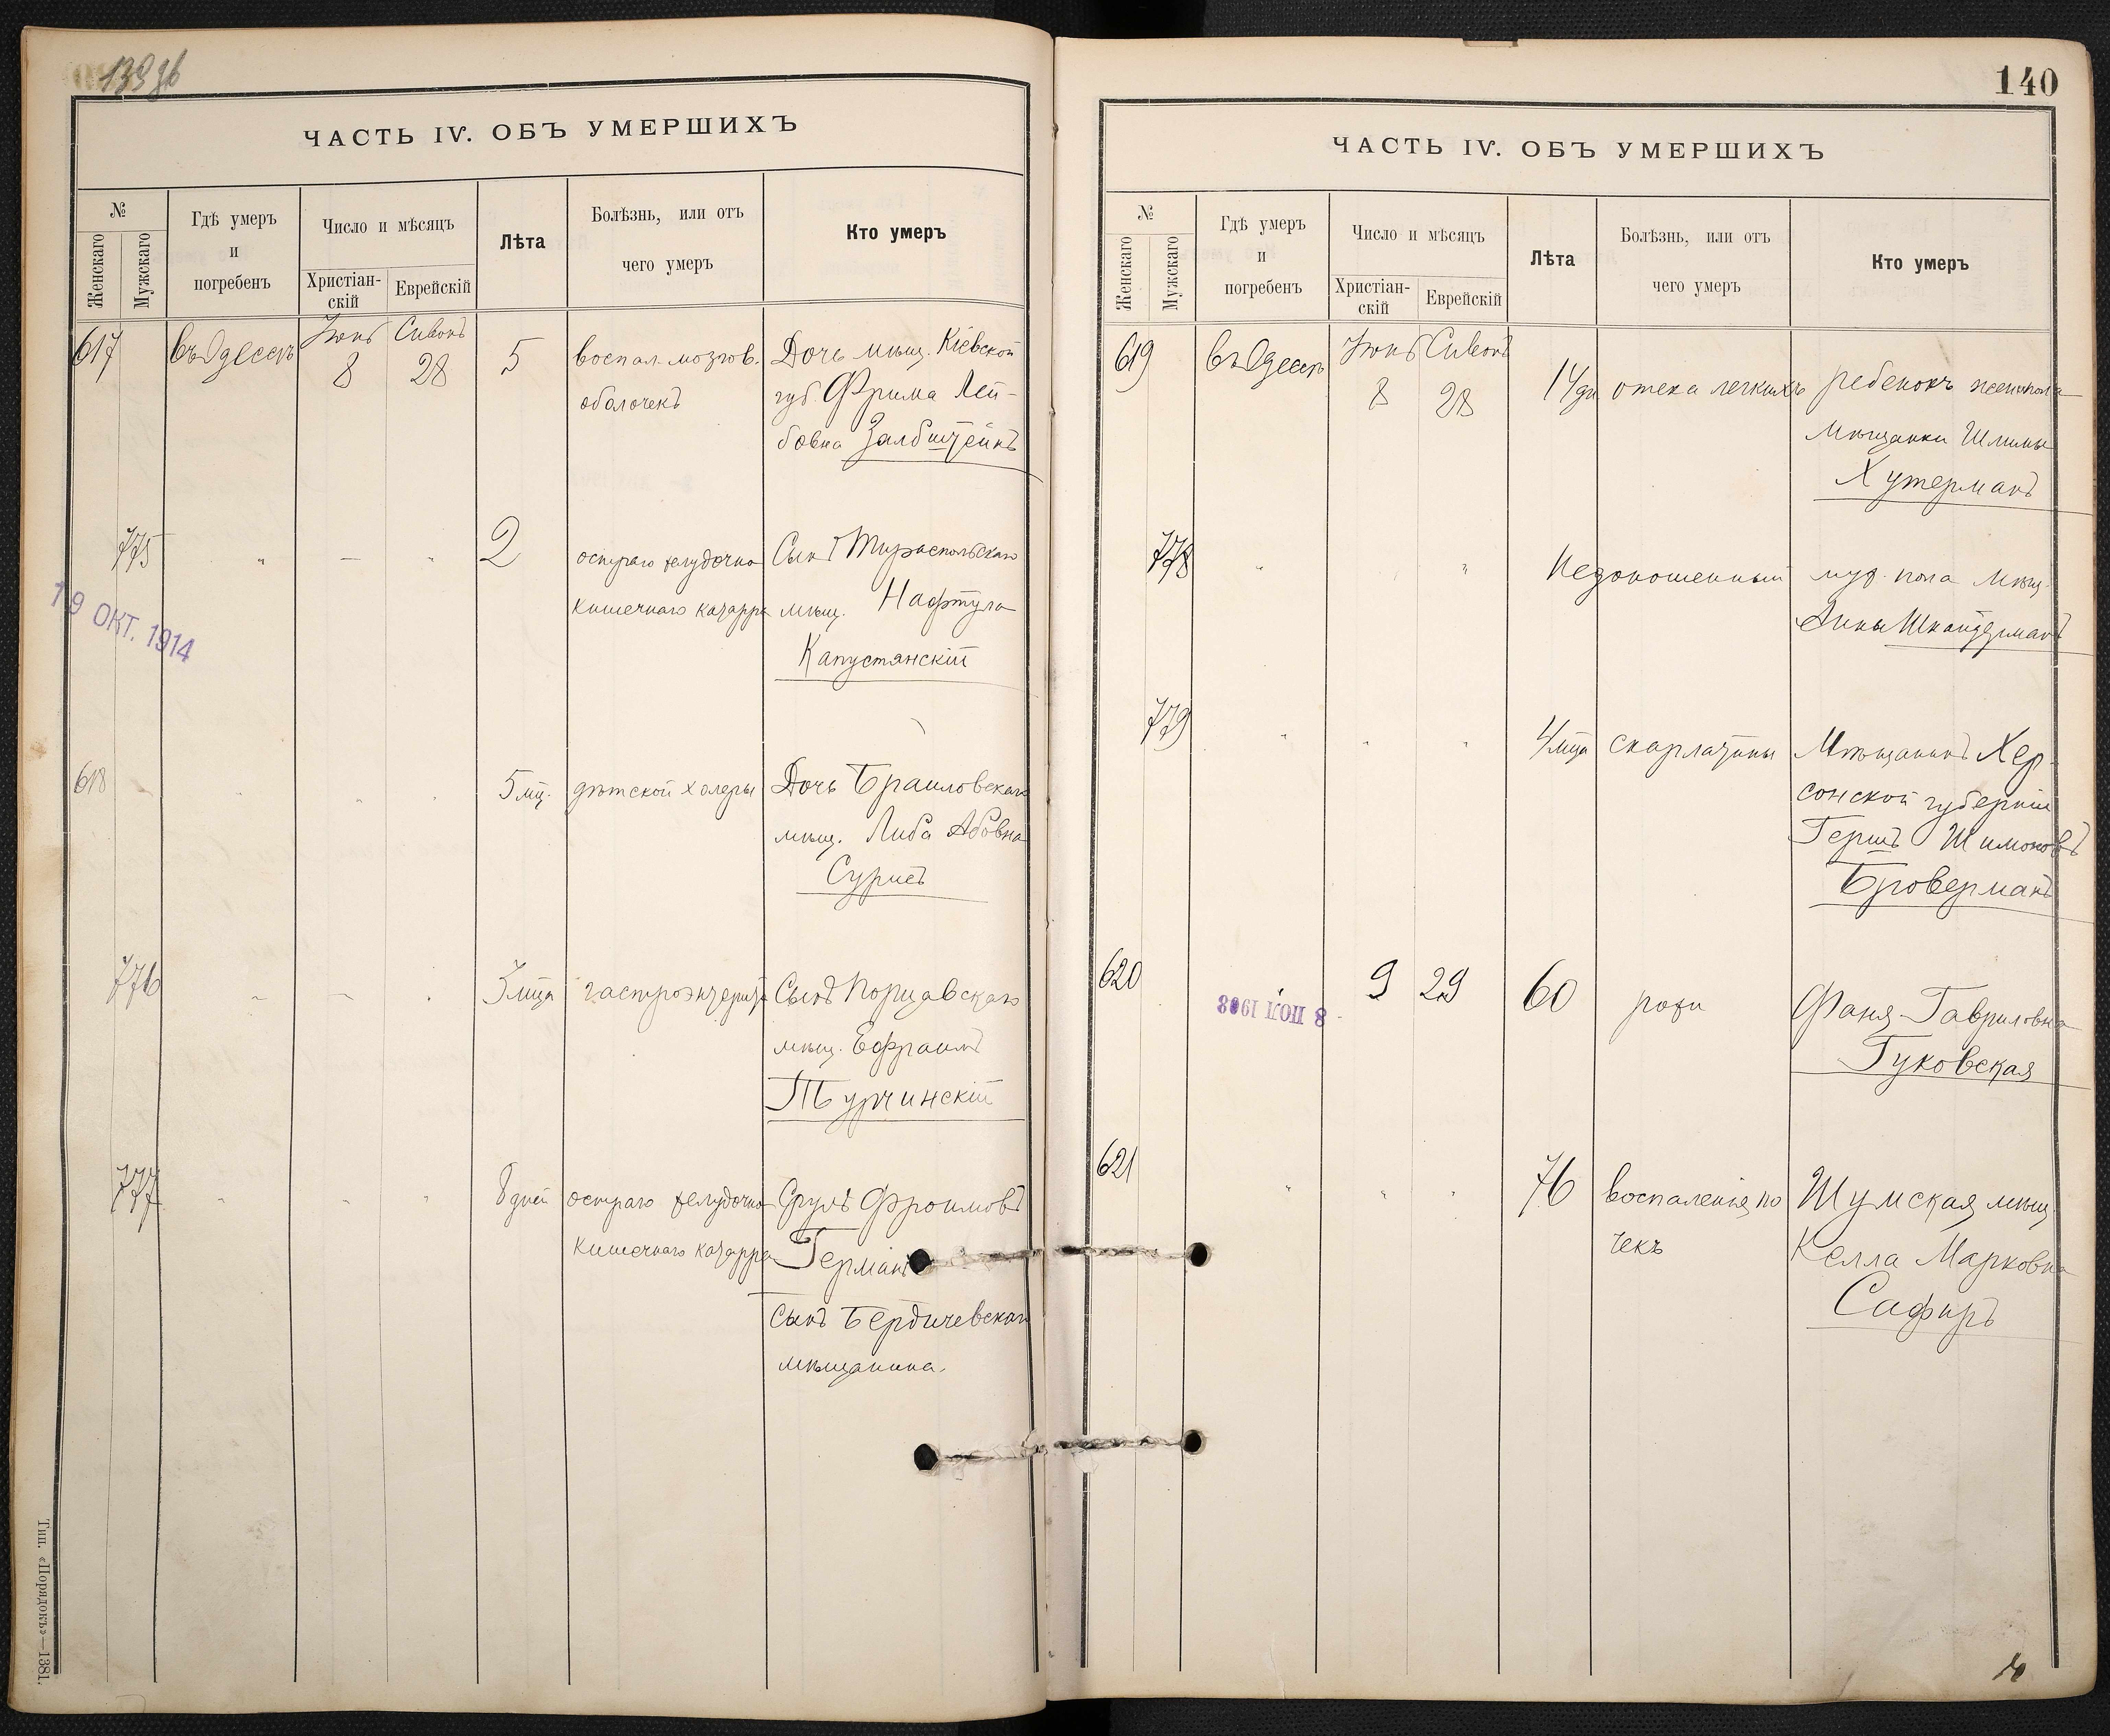 139 об
ЧАСТЬ IV. ОБЪ УМЕРШИХЪ
№
Женскаго
Мужскаго
Гдѣ умеръ
и
погребенъ
Число и мѣсяцъ
Христіан-
скій
Еврейскій
Лѣта
Болѣзнь, или отъ
чего умеръ
Кто умеръ
617 въ Одессѣ Іюнь Сивонъ
8 28 5 воспал. мозгов. Дочь мѣщ. Кіевской
оболочекъ губ. Фрима Лей-
бовна Залбштейнъ
775 " — " 2 остраго желудочно Сынъ Тираспольскаго
кишечнаго катарра мѣщ. Нафтула
Капустянскій
19 ОКТ. 1914
618 " " " 5 мц. дѣтской холеры Дочь Браиловскаго
мѣщ. Либа Абовна
Сурисъ
776 " — " 3 мца гастроэнтерита Сынъ
мѣщ. Ефраимъ
Турчинскій
777 " " " 8 дней остраго желудочно Сруль Фроимовъ
кишечнаго катарра Германъ
сынъ Бердичевскаго
мѣщанина.
Тип. «Порядокъ»—1381.
140
ЧАСТЬ IV. ОБЪ УМЕРШИХЪ
№
Женскаго
Мужскаго
Гдѣ умеръ
и
погребенъ
Число и мѣсяцъ
Христіан-
скій
Еврейскій
Лѣта
Болѣзнь, или отъ
чего умеръ
Кто умеръ
619 въ Одессѣ Іюнь Сивонъ
8 28 14 дн отека легкихъ ребенокъ жен. пола
мѣщанки Шлимы
Хутерманъ
778 " " " Недоношенный муж. пола мѣщ.
Анны Шнайдерманъ
779 " " " 4 мца скарлатины Мѣщанинъ Хер-
сонской губерніи
Гершъ Шимоновъ
Броверманъ
620 " 9 29 60 рожи Фаня Гавриловна
Гуковская
8 ІЮЛ 1908
621 " " " 76 воспаленія по Шумская мѣщ.
чекъ Келла Марковна
Сафиръ